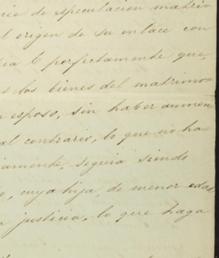 de especulacion matrim
el origen de su enlace con
perfectamente que,
los bienes del matrimon
esposo, sin haber aumen
al contrario, lo que no ha
seguia siendo
cuya hija, de menor edad
justicia, lo que haga